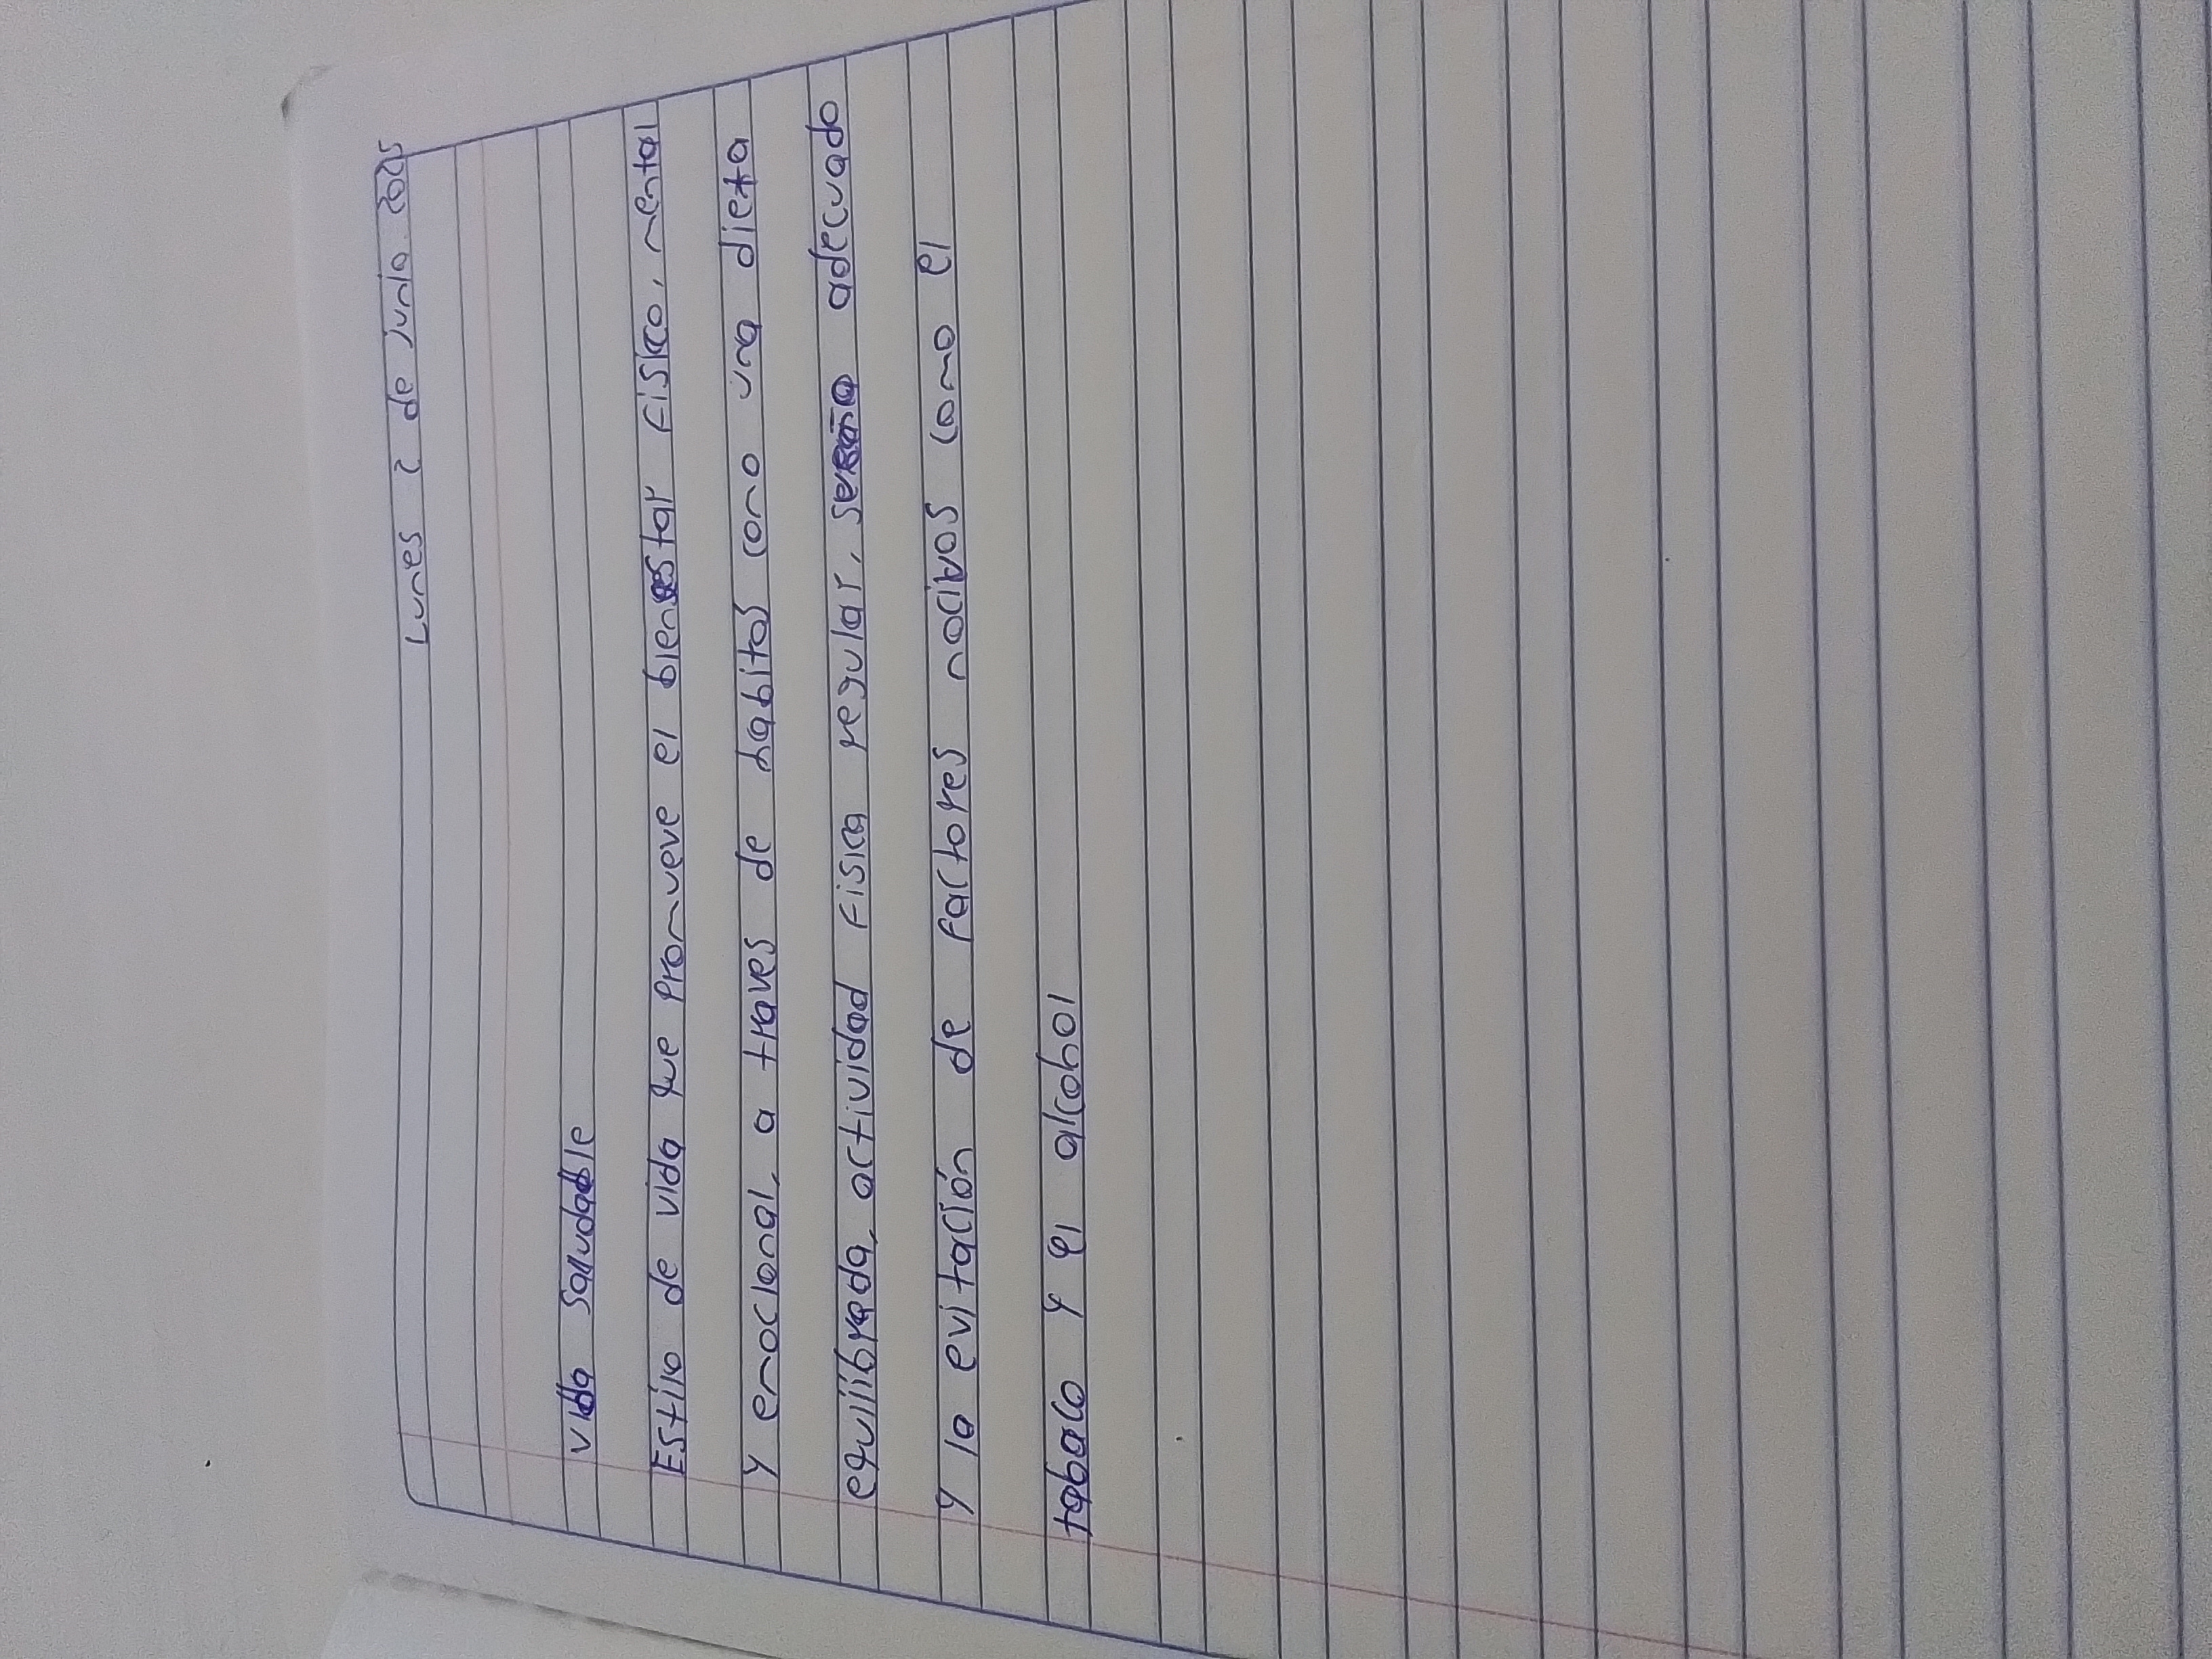 Lunes 2 de Junio 2025
Vida Saludable
Estilo de vida que Promueve el bienestar Fisico, mental
y emocional, a traves de habitos como una dieta
equilibrada, actividad Fisica regular, adecuado
y la evitación de Factores nocivos como el
tabaco y el alcohol